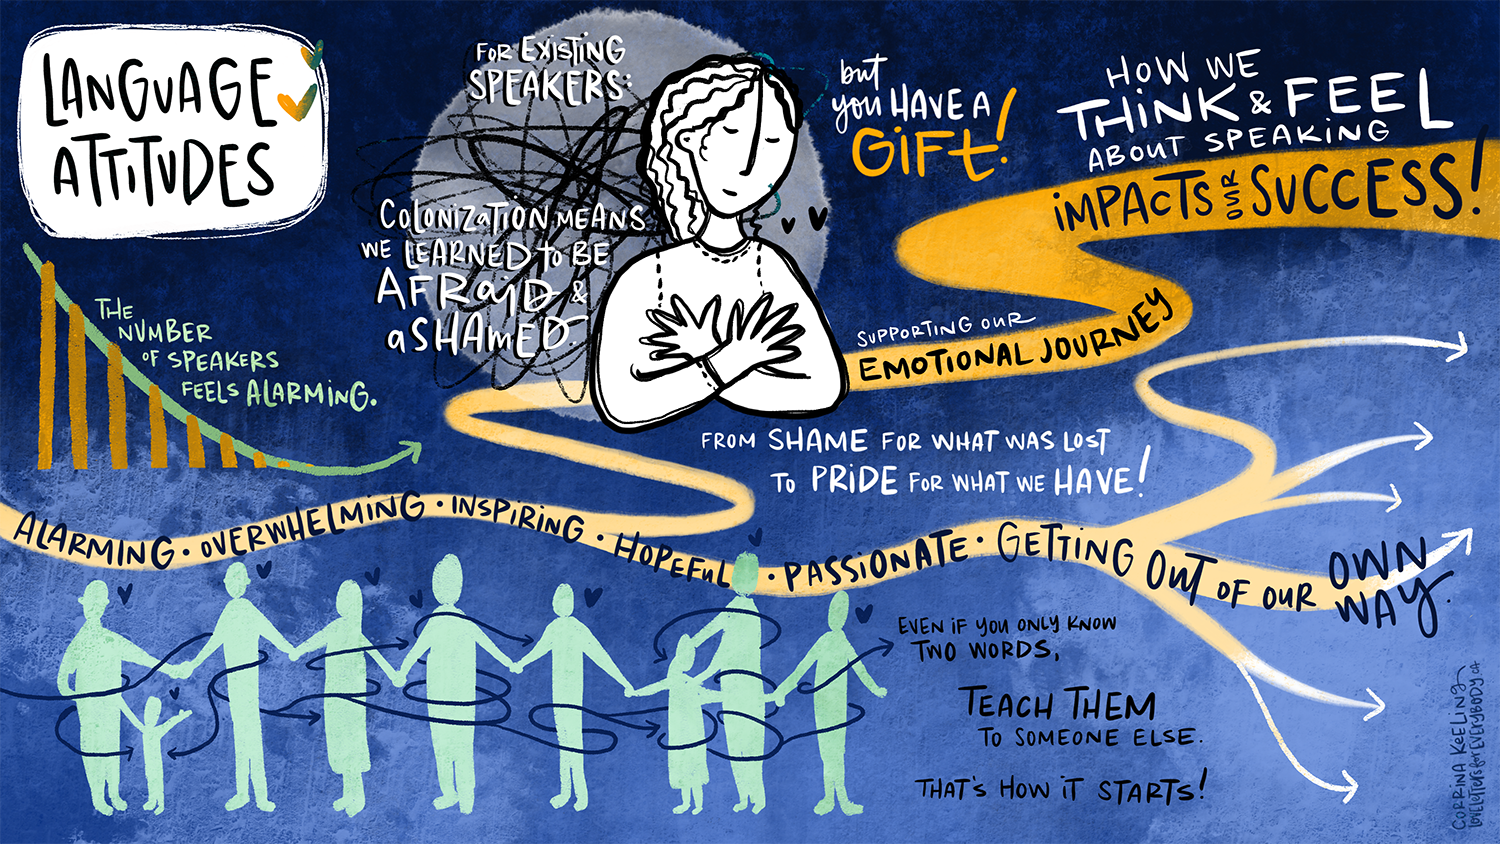 LANGUAGE
ATTITUDES
FOR EXISTING
SPEAKERS:
COLONIZATION MEANS
WE LEARNED TO BE
AFRAID &
ASHAMED.
but
you HAVE A
GIFT!
HOW WE
THINK & FEEL
ABOUT SPEAKING
IMPACTS OUR SUCCESS!
THE
NUMBER
OF SPEAKERS
FEELS ALARMING.
SUPPORTING OUR
EMOTIONAL JOURNEY
FROM SHAME FOR WHAT WAS LOST
TO PRIDE FOR WHAT WE HAVE!
ALARMING · OVERWHELMING · INSPIRING · HOPEFUL · PASSIONATE · GETTING OUT OF OUR OWN WAY.
EVEN IF YOU ONLY KNOW
TWO WORDS,
TEACH THEM
TO SOMEONE ELSE.
THAT'S HOW IT STARTS!
CORRINA KEELING
LOVELETTERSFOREVERYBODY.CA